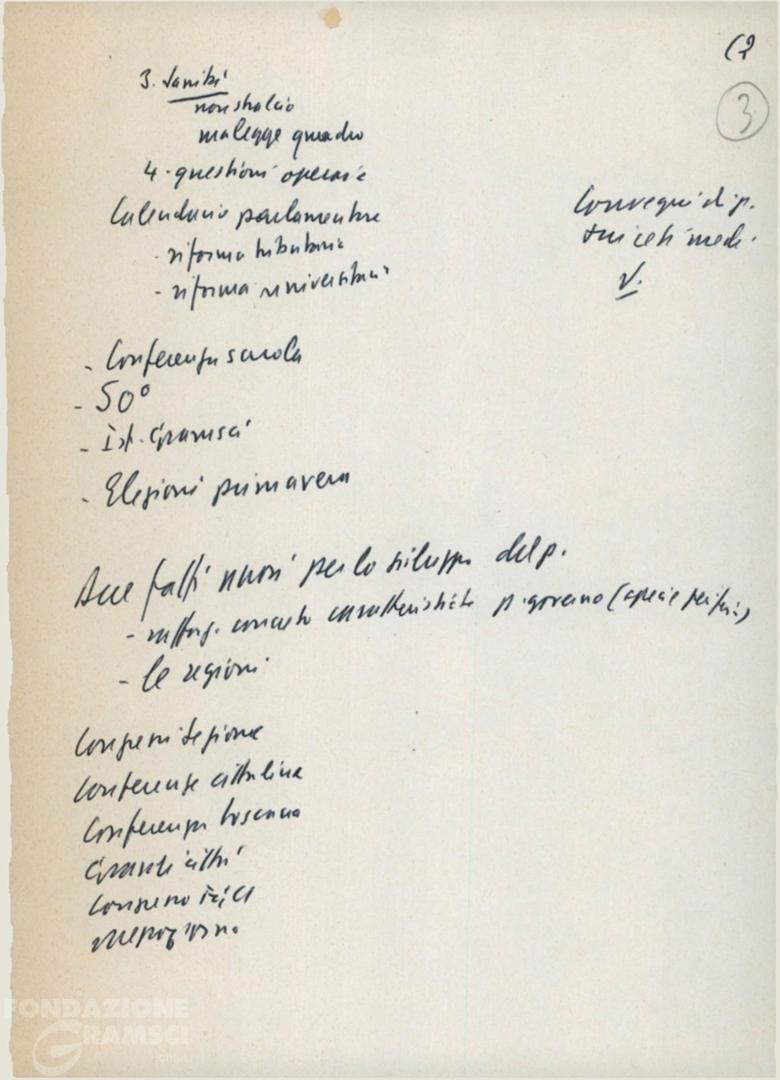 (2
3
3. Sanità
non stralcio
ma legge quadro
4. questioni operaie
Calendario parlamentare
- riforma tributaria
- riforma universitaria
Convegni di p.
sui ceti medi.
V.
- Conferenza scuola
- 50°
- Ist. Gramsci
- Elezioni primavera
Due fatti nuovi per lo sviluppo del p.
- concreto caratteristiche p. governo (specie
- le regioni
Congressi
Conferenze cittadine
Conferenza toscana
Grandi città
Congresso FGCI
Mezzogiorno
FONDAZIONE
GRAMSCI